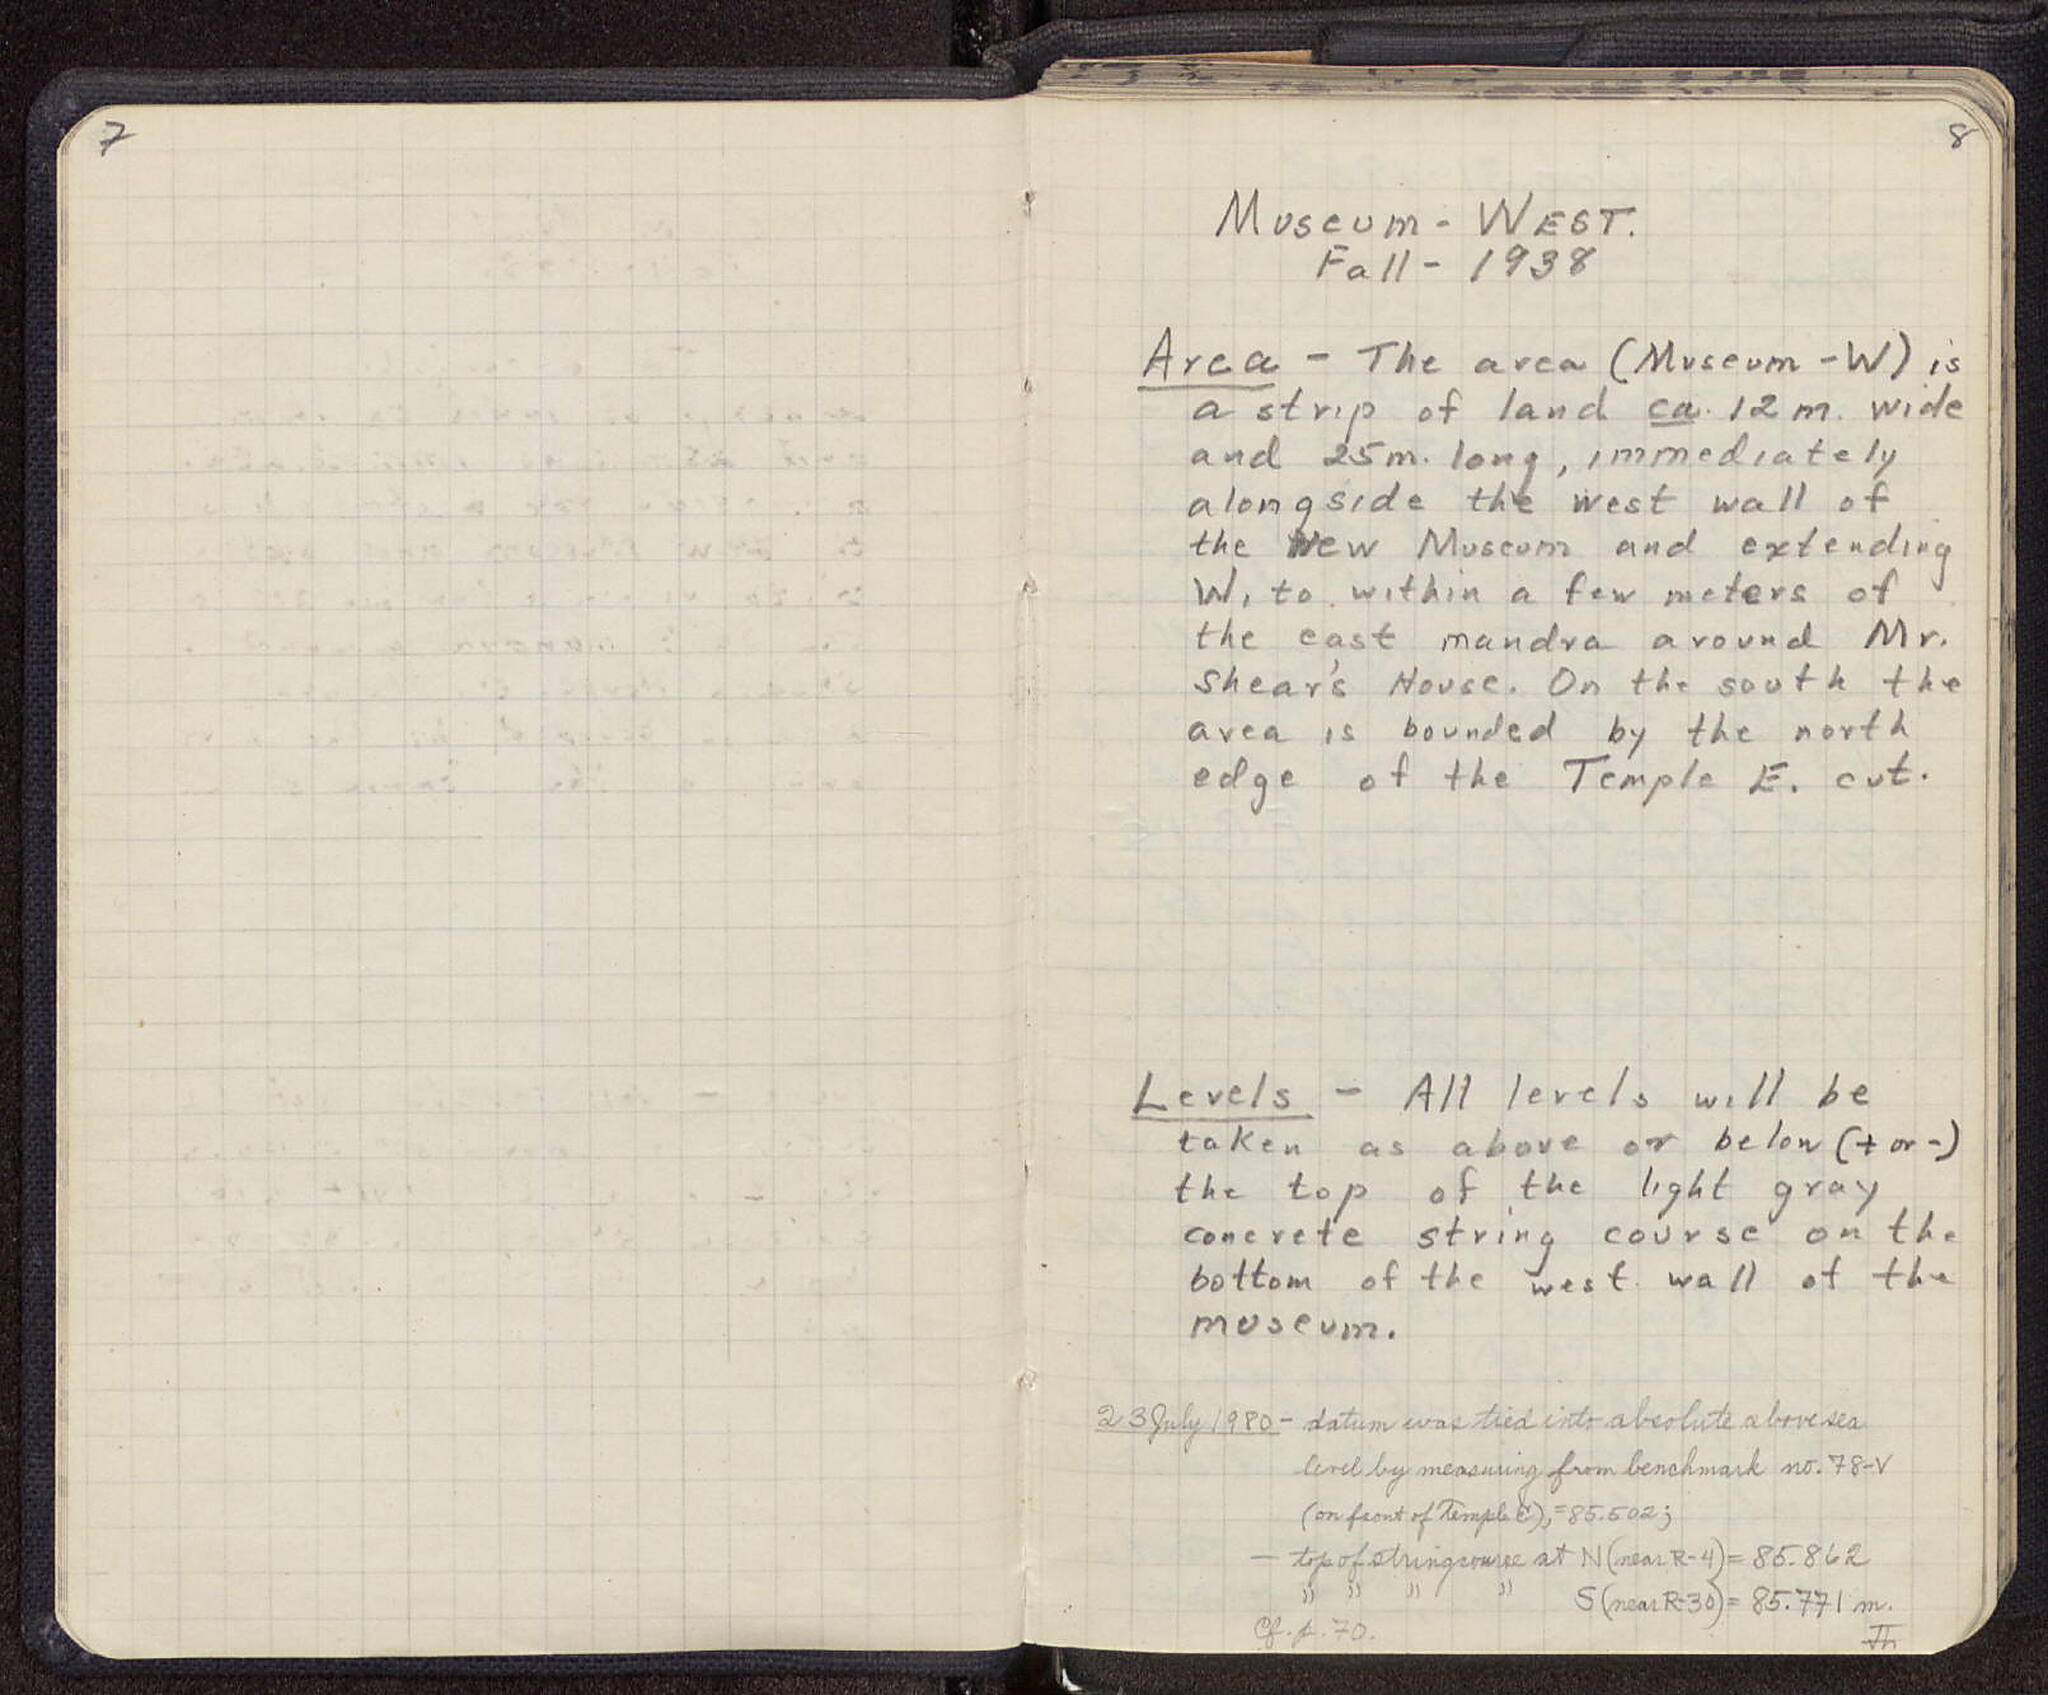 7
8
Museum - WEST.
Fall - 1938
Area - The area (Museum - W) is
a strip of land ca. 12 m. wide
and 25 m. long, immediately
alongside the west wall of
the New Museum and extending
W. to within a few meters of
the east mandra around Mr.
Shear's House. On the south the
area is bounded by the north
edge of the Temple E. cut.
Levels - All levels will be
taken as above or below (+ or -)
the top of the light gray
concrete string course on the
bottom of the west wall of the
museum.
23 July 1980 - datum was tied into absolute above sea
level by measuring from benchmark no. 78-V
(on front of Temple C), = 85.502;
- top of stringcourse at N (near R-4) = 85.862
" " " " S (near R-30) = 85.771 m.
Cf. p. 70.